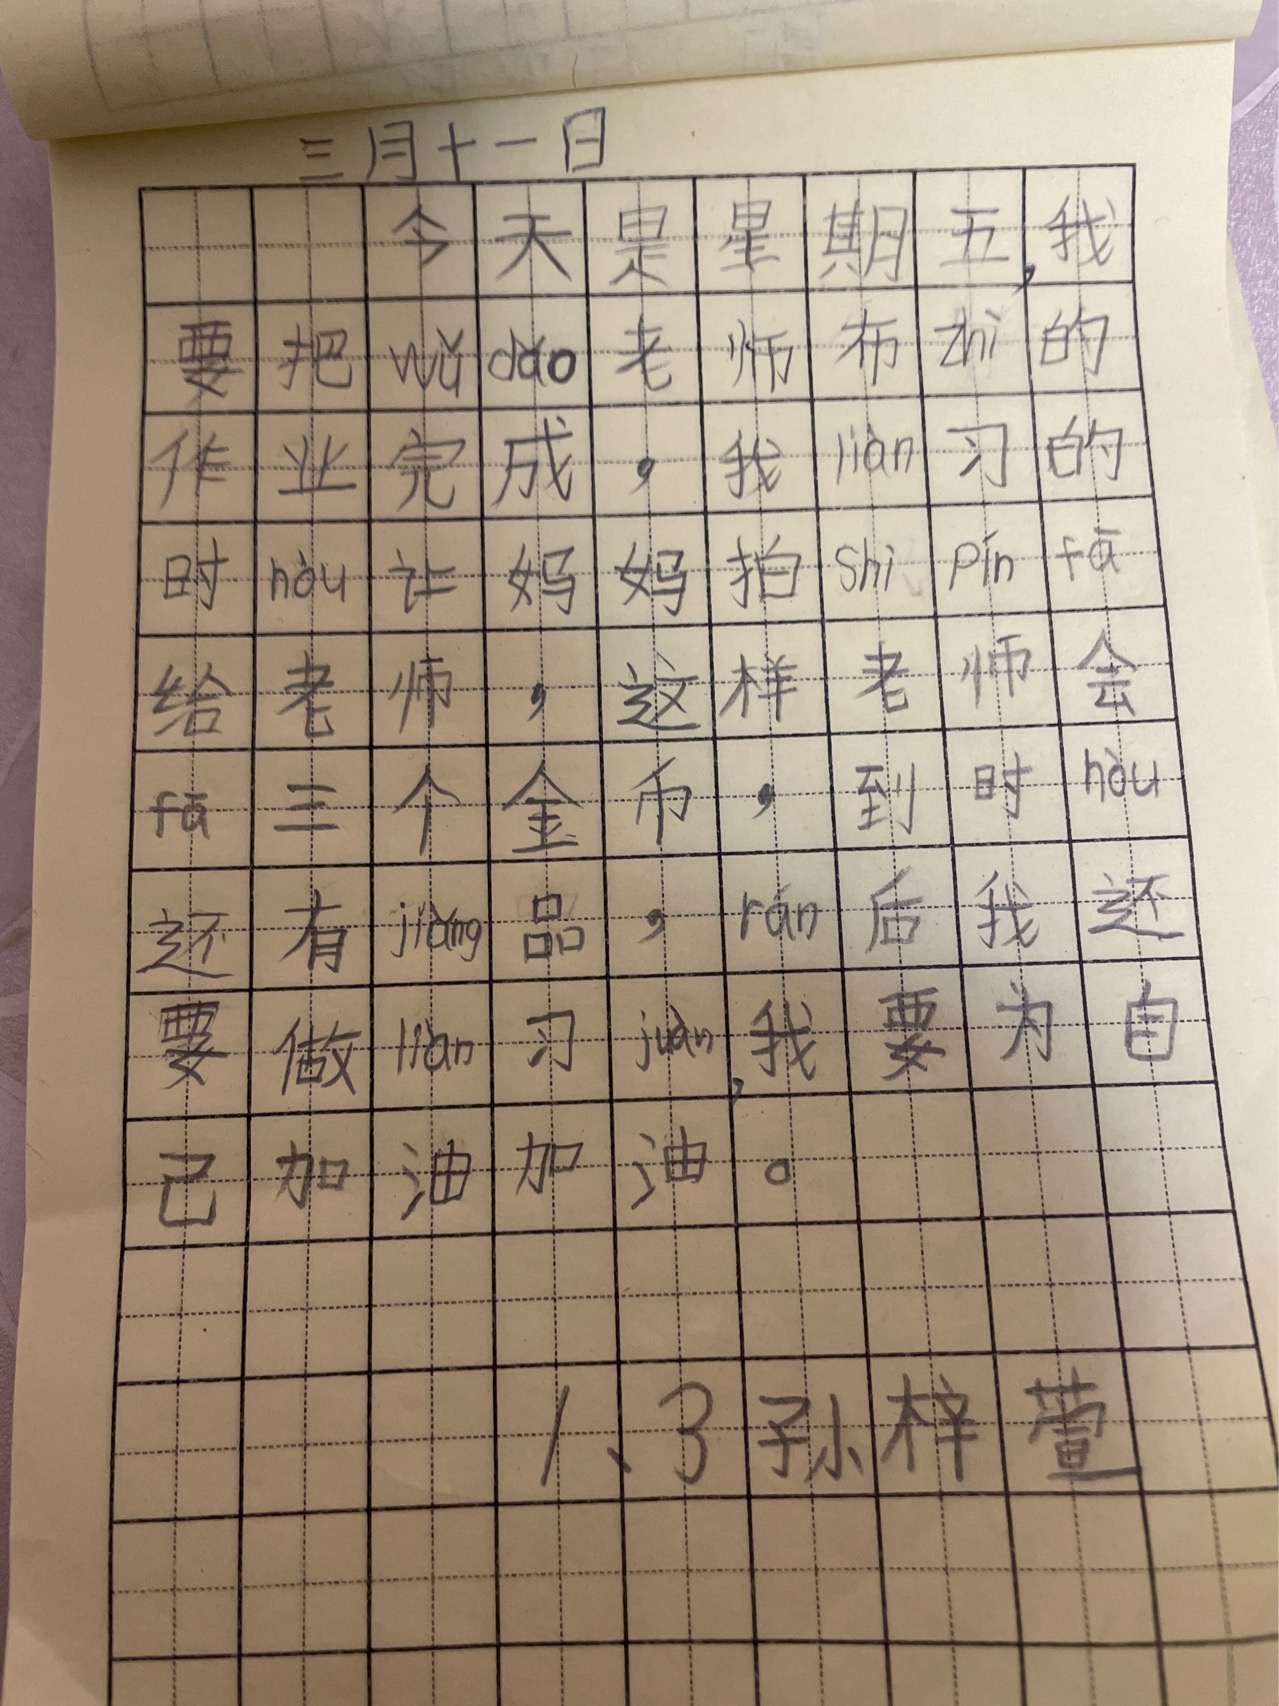 三月十一日
今天是星期五,我
要把wǔ dǎo老师布zhì的
作业完成，我liàn习的
时hòu让妈妈拍shì pín fā
给老师，这样老师会
fā三个金币，到时hòu
还有jiǎng品，rán后我还
要做liàn习juàn,我要为自
己加油加油。
1、3孙梓萱